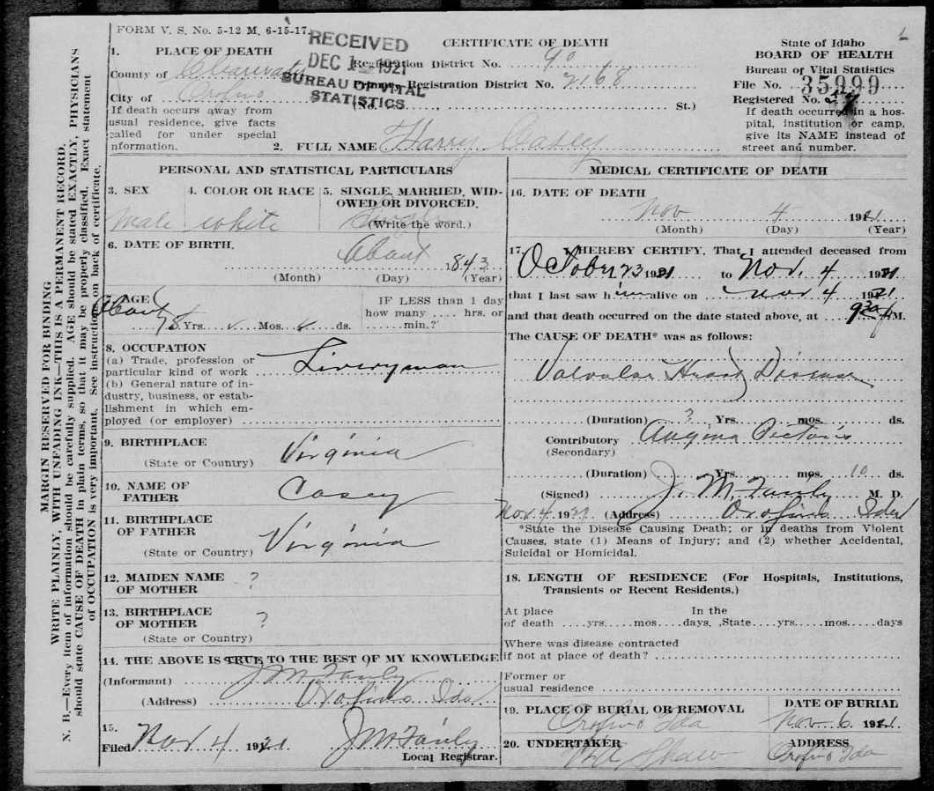 FORM V. S. No. 5-12 M. 6-15-17.
RECEIVED
DEC 1 1921
BUREAU OF VITAL
STATISTICS.
CERTIFICATE OF DEATH
State of Idaho
BOARD OF HEALTH
Bureau of Vital Statistics
File No. 35999
Registered No.
If death occurred in a hos-
pital, institution or camp,
give its NAME instead of
street and number.
1. PLACE OF DEATH
County of Clearwater
City of Orofino
If death occurs away from
usual residence, give facts
called for under special
information.
Registration District No. 90
Registration District No. 2168
(No. St.)
2. FULL NAME Harry Casey
PERSONAL AND STATISTICAL PARTICULARS
3. SEX
male
4. COLOR OR RACE
white
5. SINGLE, MARRIED, WID-
OWED OR DIVORCED.
Single
(Write the word.)
6. DATE OF BIRTH.
About 1843
(Month) (Day) (Year)
7. AGE
About 78 Yrs. Mos. ds.
IF LESS than 1 day
how many hrs. or
min.?
8. OCCUPATION
(a) Trade, profession or
particular kind of work
Liveryman
(b) General nature of in-
dustry, business, or estab-
lishment in which em-
ployed (or employer)
9. BIRTHPLACE
(State or Country)
Virginia
10. NAME OF
FATHER
Casey
11. BIRTHPLACE
OF FATHER
(State or Country)
Virginia
12. MAIDEN NAME
OF MOTHER
?
13. BIRTHPLACE
OF MOTHER
(State or Country)
?
14. THE ABOVE IS TRUE TO THE BEST OF MY KNOWLEDGE
(Informant) J M Fairly
(Address) Orofino Ida
15.
Filed Nov 4 1921 J M Fairly
Local Registrar.
MEDICAL CERTIFICATE OF DEATH
16. DATE OF DEATH
Nov 4 1921
(Month) (Day) (Year)
17. I HEREBY CERTIFY, That I attended deceased from
October 3 1921 to Nov. 4 1921
that I last saw him alive on Nov 4 1921
and that death occurred on the date stated above, at 9 30 P M.
The CAUSE OF DEATH* was as follows:
Valvular Heart Disease
(Duration) ? Yrs. mos. ds.
Contributory Angina Pectoris
(Secondary)
(Duration) Yrs. mos. 10 ds.
(Signed) J. M. Fairly M. D.
Nov 4 1921 (Address) Orofino Ida
*State the Disease Causing Death; or in deaths from Violent
Causes, state (1) Means of Injury; and (2) whether Accidental,
Suicidal or Homicidal.
18. LENGTH OF RESIDENCE (For Hospitals, Institutions,
Transients or Recent Residents.)
At place In the
of death yrs. mos. days. State yrs. mos. days
Where was disease contracted
if not at place of death?
Former or
usual residence
19. PLACE OF BURIAL OR REMOVAL
Orofino Ida
DATE OF BURIAL
Nov 6 1921
20. UNDERTAKER
Shaw
ADDRESS
Orofino Ida
MARGIN RESERVED FOR BINDING
WRITE PLAINLY, WITH UNFADING INK—THIS IS A PERMANENT RECORD.
N. B.—Every item of information should be carefully supplied. AGE should be stated EXACTLY. PHYSICIANS
should state CAUSE OF DEATH in plain terms, so that it may be properly classified. Exact statement
of OCCUPATION is very important. See instructions on back of certificate.